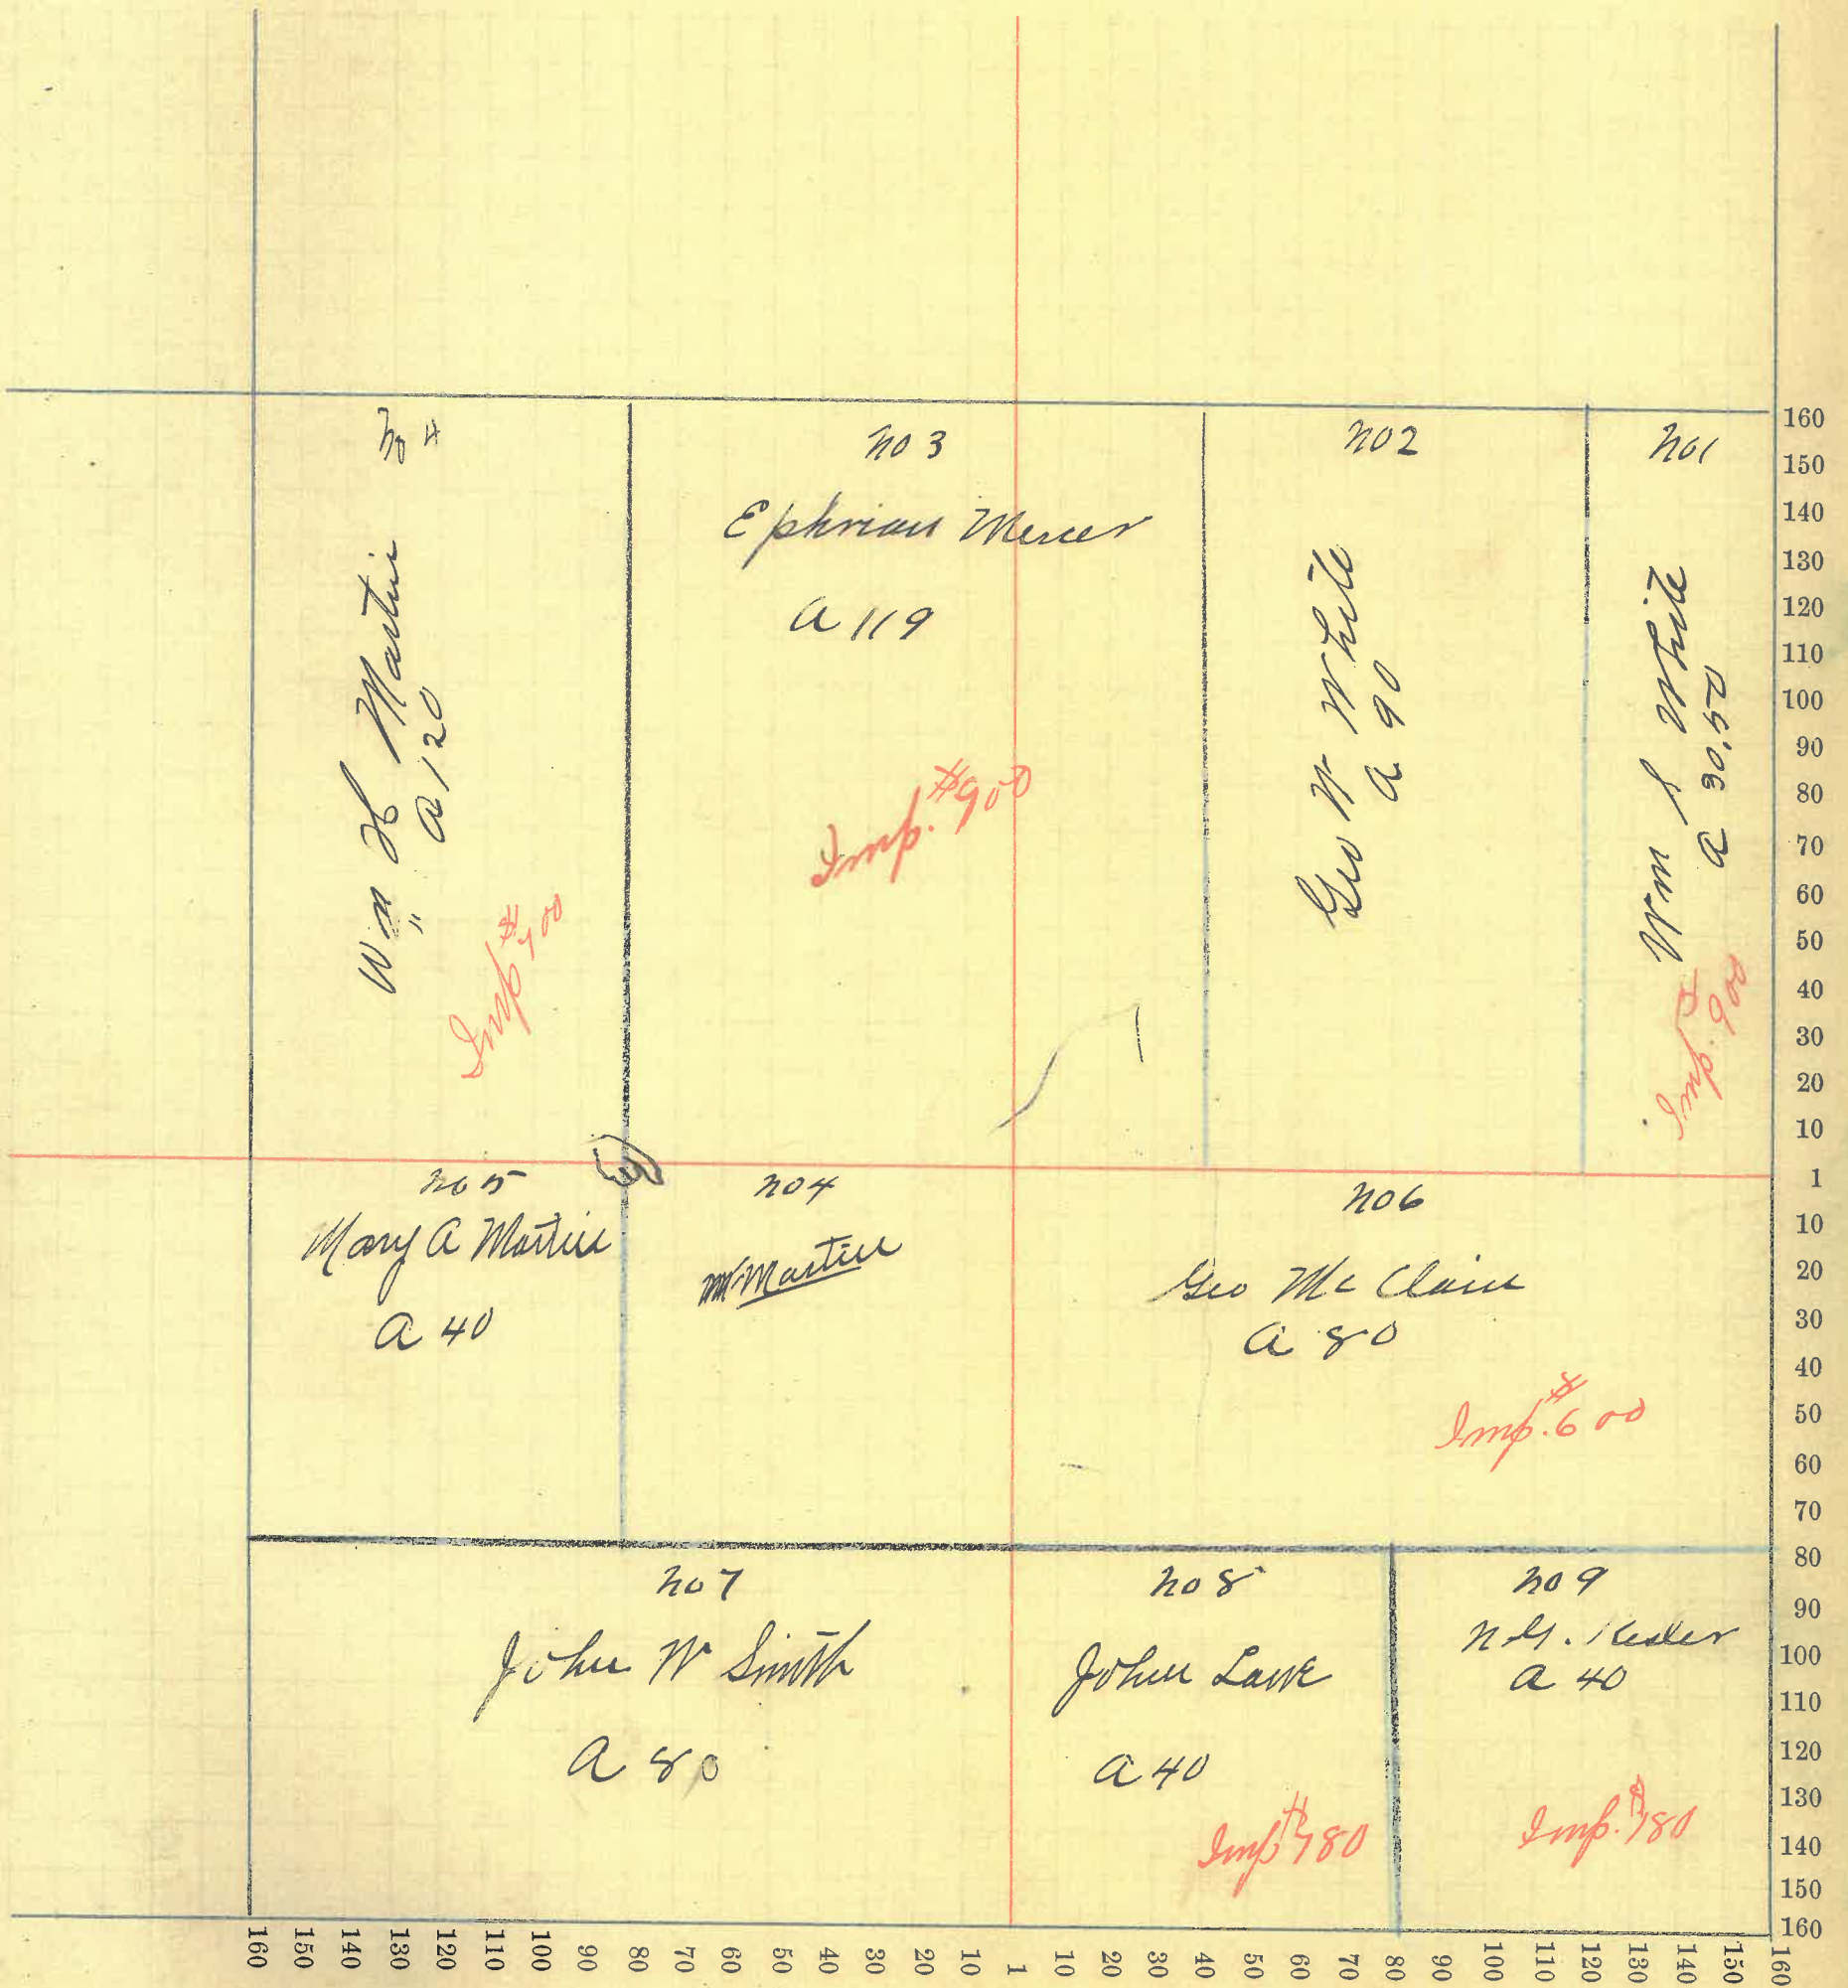 No 4
Wm H Martin
A 120
Imp $700
No 3
Ephriam Mercer
A 119
Imp. $900
No 2
Geo W White
A 90
No 1
Wm S White
A 30.50
Imp. $900
No 5
Mary A Martin
A 40
No 4
Wm Martin
No 6
Geo Mc Clain
A 80
Imp. $600
No 7
John W Smith
A 80
No 8
John Lowe
A 40
Imp $780
No 9
A 40
Imp. $780
160
150
140
130
120
110
100
90
80
70
60
50
40
30
20
10
1
10
20
30
40
50
60
70
80
90
100
110
120
130
140
150
160
160 150 140 130 120 110 100 90 80 70 60 50 40 30 20 10 1 10 20 30 40 50 60 70 80 90 100 110 120 130 140 150 160